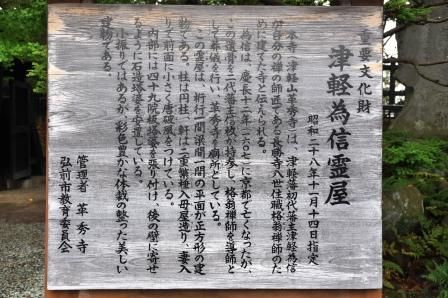 重要文化財
津軽為信霊屋
昭和二十八年十一月十四日指定
本寺、津軽山革秀寺は、津軽藩初代藩主津軽為信
が自分の禅の師匠である長勝寺八世住職格翁禅師のた
めに建てた寺と伝えられる。
為信は、慶長十二年(一六〇七)に京都で亡くなったが、
この遺骨を二代藩主信枚が持参し、格翁禅師を導師と
して葬儀を行い、革秀寺を廟所としている。
この霊屋は、桁行一間梁間一間の平面が正方形の建
物である。柱は円柱、軒は二重繁種入母屋造り、妻入
りで前面に小さく唐破風をつけている。
内部には四十九院板塔婆を張り付け、後の壁に寄せ
るように石造塔婆を安置している。
小振りではあるが、彩色豊かな体裁の整った美しい
建物である。
管理者 革秀寺
弘前市教育委員会